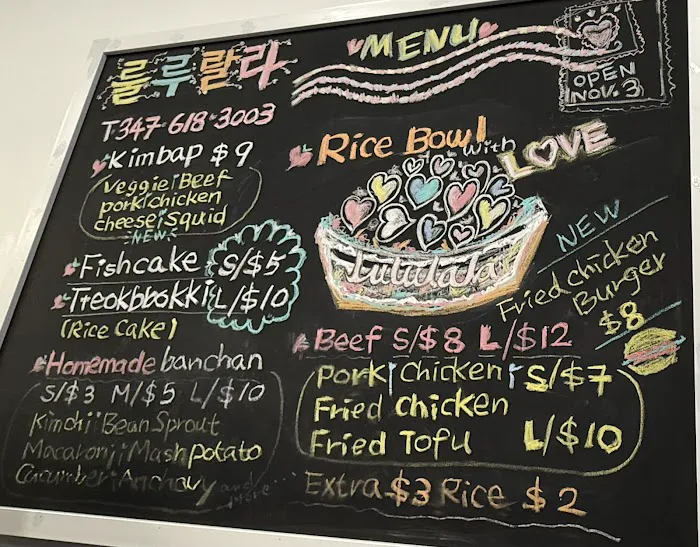 룰루랄라
MENU
OPEN
NOV. 3
T347-618-3003
Kimbap $9
Veggie Beef
pork chicken
cheese Squid
NEW
Fishcake S/$5
Tteokbbokki L/$10
(Rice Cake)
Homemade banchan
S/$3 M/$5 L/$10
Kimchi Bean Sprout
Macaroni Mash potato
Cucumber Anchovy and more...
Rice Bowl with LOVE
Lululala
NEW
Fried chicken
Burger
$8
Beef S/$8 L/$12
Pork chicken S/$7
Fried chicken
Fried Tofu L/$10
Extra $3 Rice $2